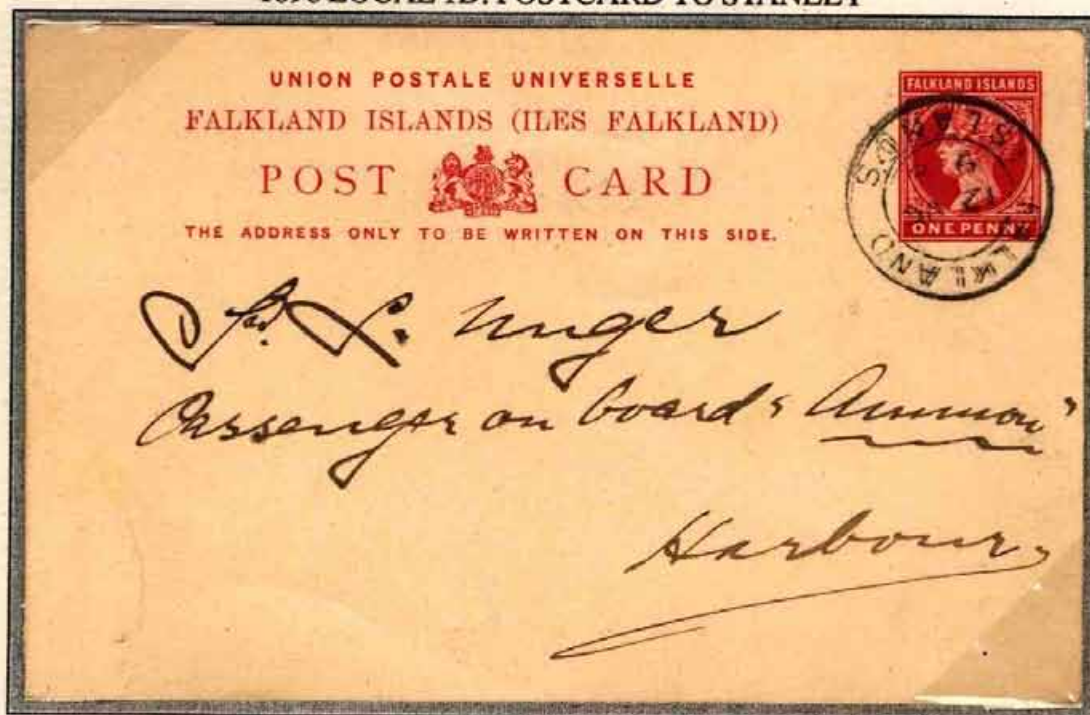 UNION POSTALE UNIVERSELLE
FALKLAND ISLANDS (ILES FALKLAND)
POST CARD
THE ADDRESS ONLY TO BE WRITTEN ON THIS SIDE.
FALKLAND ISLANDS
ONE PENNY
FALKLAND ISLANDS
Unger
Passenger on board "Ammon"
Harbour